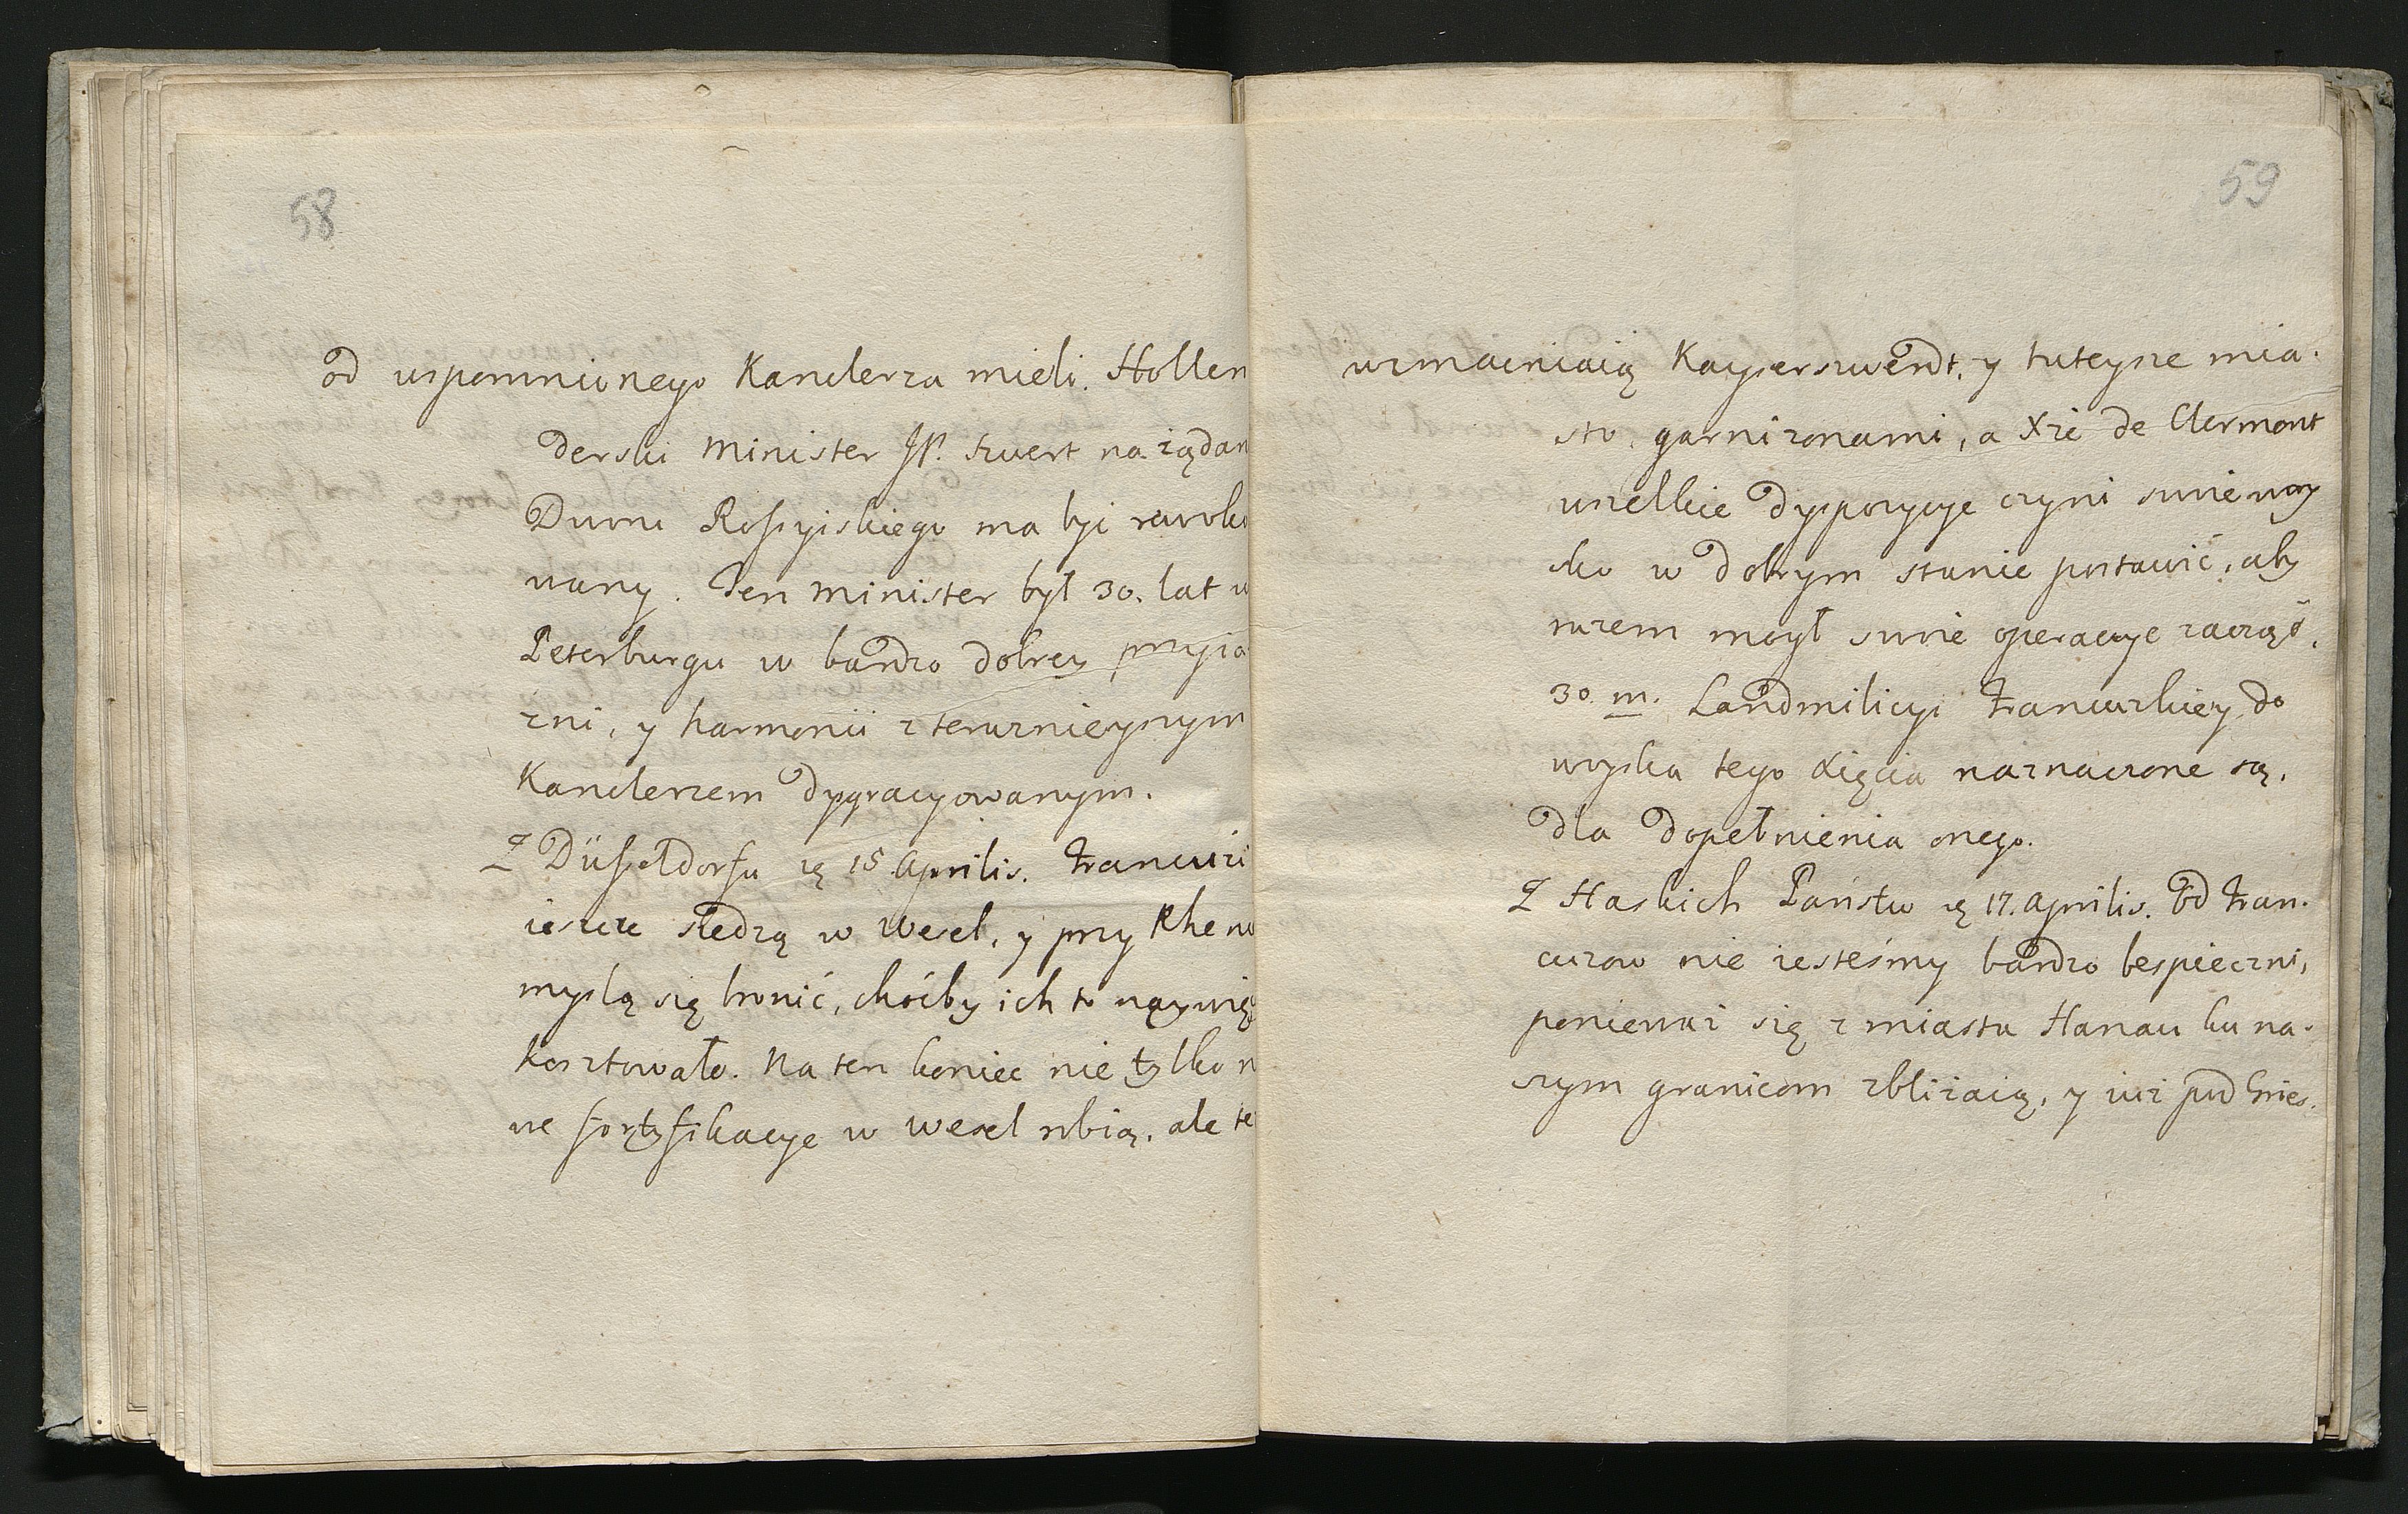 58
od wspomnionego Kanclerza mieli. Hollen
derski Minister JP. Szwert na żądan
Dworu Rossyiskiego ma byi rewoko
wany. Ten Minister był 30. lat w
Peterburgu w bardzo dobrey przyia
zni, y harmonii z terurznieyszym
Kanclerzem dyzgracyowanym.
Z Düsseldorfu 15. Aprilis. Francuzi
ieszcze siedzą w Wesel, y przy Rhenu
myslą się bronić, choćby ich to naywię
kosztowało. Na ten koniec nie tylko n
we fortyfikacye w Wesel robią, ale te
59
wzmacniaią Kayserswerdt, y tuteysze mia.
sto, garnizonami, a Xże de Clermont
wszelkie dyspozycye czyni swie woy
sko w dobrym stanie postawić, aby
wrzem mogł swoie operacye zacząć.
30. m. Landmilicyi Francuzkiey do
woyska tego Xięcia naznaczone są,
dla dopełnienia onego.
Z Haskich Państw 17. Aprilis. Od Fran.
cuzow nie iesteśmy bardzo bespieczni,
ponieważ się z miasta Hanau ku na.
szym granicom zbliżaią, y iuż pod Gries.